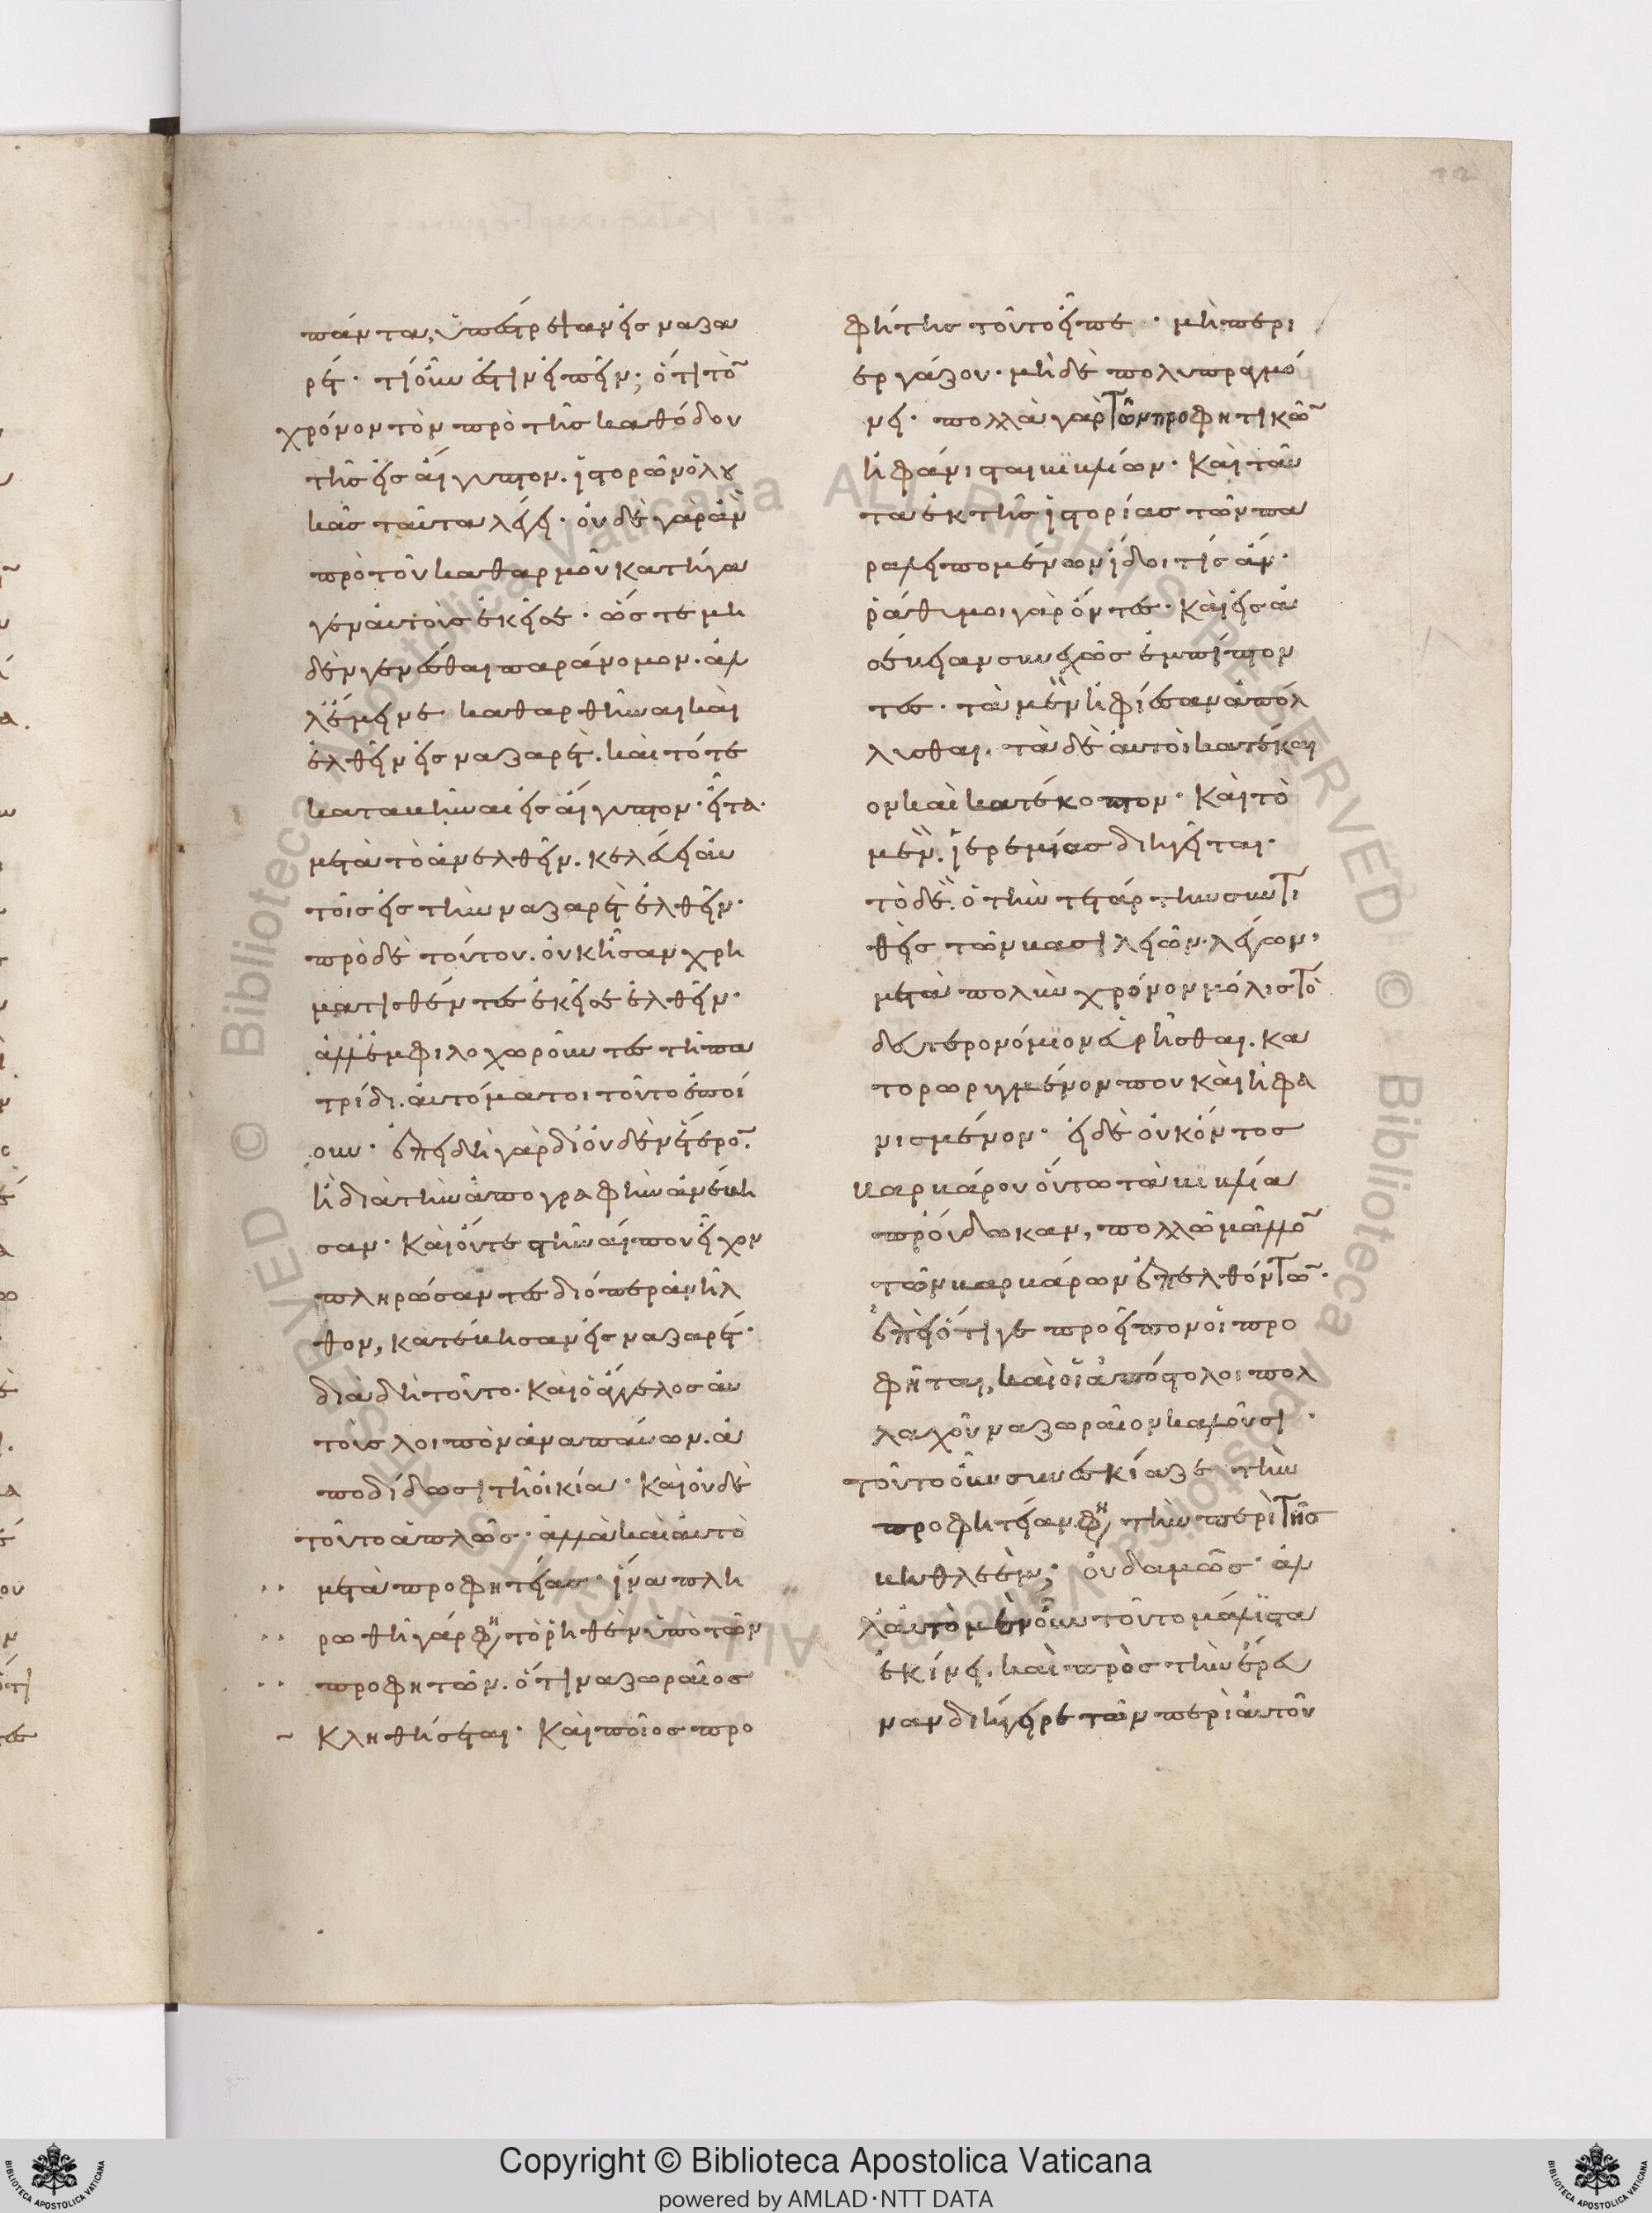 πάντα, ὑπέστρεψαν εἰς ναζα
ρέτ· τί οὖν ἔστιν εἰπεῖν; ὅτι τὸ̄
χρόνον τὸν πρὸ τῆς καθόδου
τῆς εἰς αἴγυπτον. ἱστορῶν ὁ λȣ
κᾶς ταῦτα λέγει· οὐδὲ γὰρ ἂν
πρὸ τοῦ καθαρμοῦ κατήγα
γεν αὐτοὺς ἐκεῖσε· ὥστε μη
δὲν γενέσθαι παράνομον. ἀλ
λ' ἔμεινε καθαρθῆναι καὶ
ἐλθεῖν εἰς ναζαρέτ. καὶ τότε
καταβῆναι εἰς αἴγυπτον· εἶτα
μετὰ τὸ ἀνελθεῖν. κελεύει αὐ
τοῖς εἰς τὴν ναζαρὲτ ἐλθεῖν·
πρὸ δὲ τούτου. οὐκ ἦσαν χρη
ματισθέντες ἐκεῖσε ἐλθεῖν·
ἀλλ' ἐμφιλοχωροῦντες τῆ πα
τρίδι. αὐτόματοι τοῦτο ἐποί
ουν· ἐπειδὴ γὰρ δι' οὐδὲν ἕτερο̄.
ἢ διὰ τὴν ἀπογραφὴν ἀνέβη
σαν· καὶ οὔτε στῆναί που εἶχον
πληρώσαντες διόπερ ἀνῆλ
θον, κατέβησαν εἰς ναζαρέτ·
διὰ δὴ τοῦτο· καὶ ὁ ἄγγελος αὐ
τοὺς λοιπὸν ἀναπαύων. ἀ
ποδίδωσι τῆ οἰκία· καὶ οὐδὲ
τοῦτο ἁπλῶς· ἀλλὰ καὶ αὐτὸ
μετὰ προφητείας· ἵνα πλη
ρωθῆ γάρ φη, τὸ ῥηθὲν ὑπὸ τῶν
προφητῶν. ὅτι ναζωραῖος
κληθήσεται· καὶ ποῖος προ
φήτης τοῦτο εἶπε· μὴ περι
εργάζου· μὴ δὲ πολυπραγμό
νει· πολλὰ γὰρ τῶν προφητικῶ̄
ἠφάνισται βιβλίων· καὶ ταῦ
τα ἐκ τῆς ἱστορίας τῶν πα
ραλειπομένων ἴδοι τίς ἄν·
ῥάθυμοι γὰρ ὄντες· καὶ εἰς ἀ
σέβειαν συνεχῶς ἐμπίπτον
τες· τὰ μὲν ἠφίεσαν ἀπόλ
λυσθαι. τὰ δὲ αὐτοὶ κατέκαι
ον καὶ κατέκοπτον· καὶ τὸ
μὲν. ἱερεμίας διηγεῖται·
τὸ δὲ. ὁ τὴν τετάρτην συντι
θεὶς τῶν βασιλειῶν. λέγων,
μετὰ πολὺν χρόνον μόλις τὸ
δευτερονόμιον εὑρῆσθαι. κα
τορωρυγμένον που καὶ ἠφα
νισμένον· εἰ δὲ οὐκ ὄντος
βαρβάρου οὕτω τὰ βιβλία
προύδωκαν, πολλῶ μᾶλλο̄
τῶν βαρβάρων ἐπελθόντω̄·
ἐπεὶ ὅτι γε προεῖπον οἱ προ
φῆται, καὶ οἱ ἀπόστολοι πολ
λαχοῦ ναζωραῖον καλοῦσι·
τοῦτο οὖν συνεσκίαζε τὴν
προφητείαν φη, τὴν περὶ τῆς
βηθλεέμ; οὐδαμῶς· ἀλ
λ' αὐτὸ μὲν οὖν τοῦτο μάλιστα
ἐκίνει. καὶ πρὸς τὴν ἔρευ
ναν διήγειρε τῶν περὶ αὐτοῦ
Copyright © Biblioteca Apostolica Vaticana
powered by AMLAD·NTT DATA